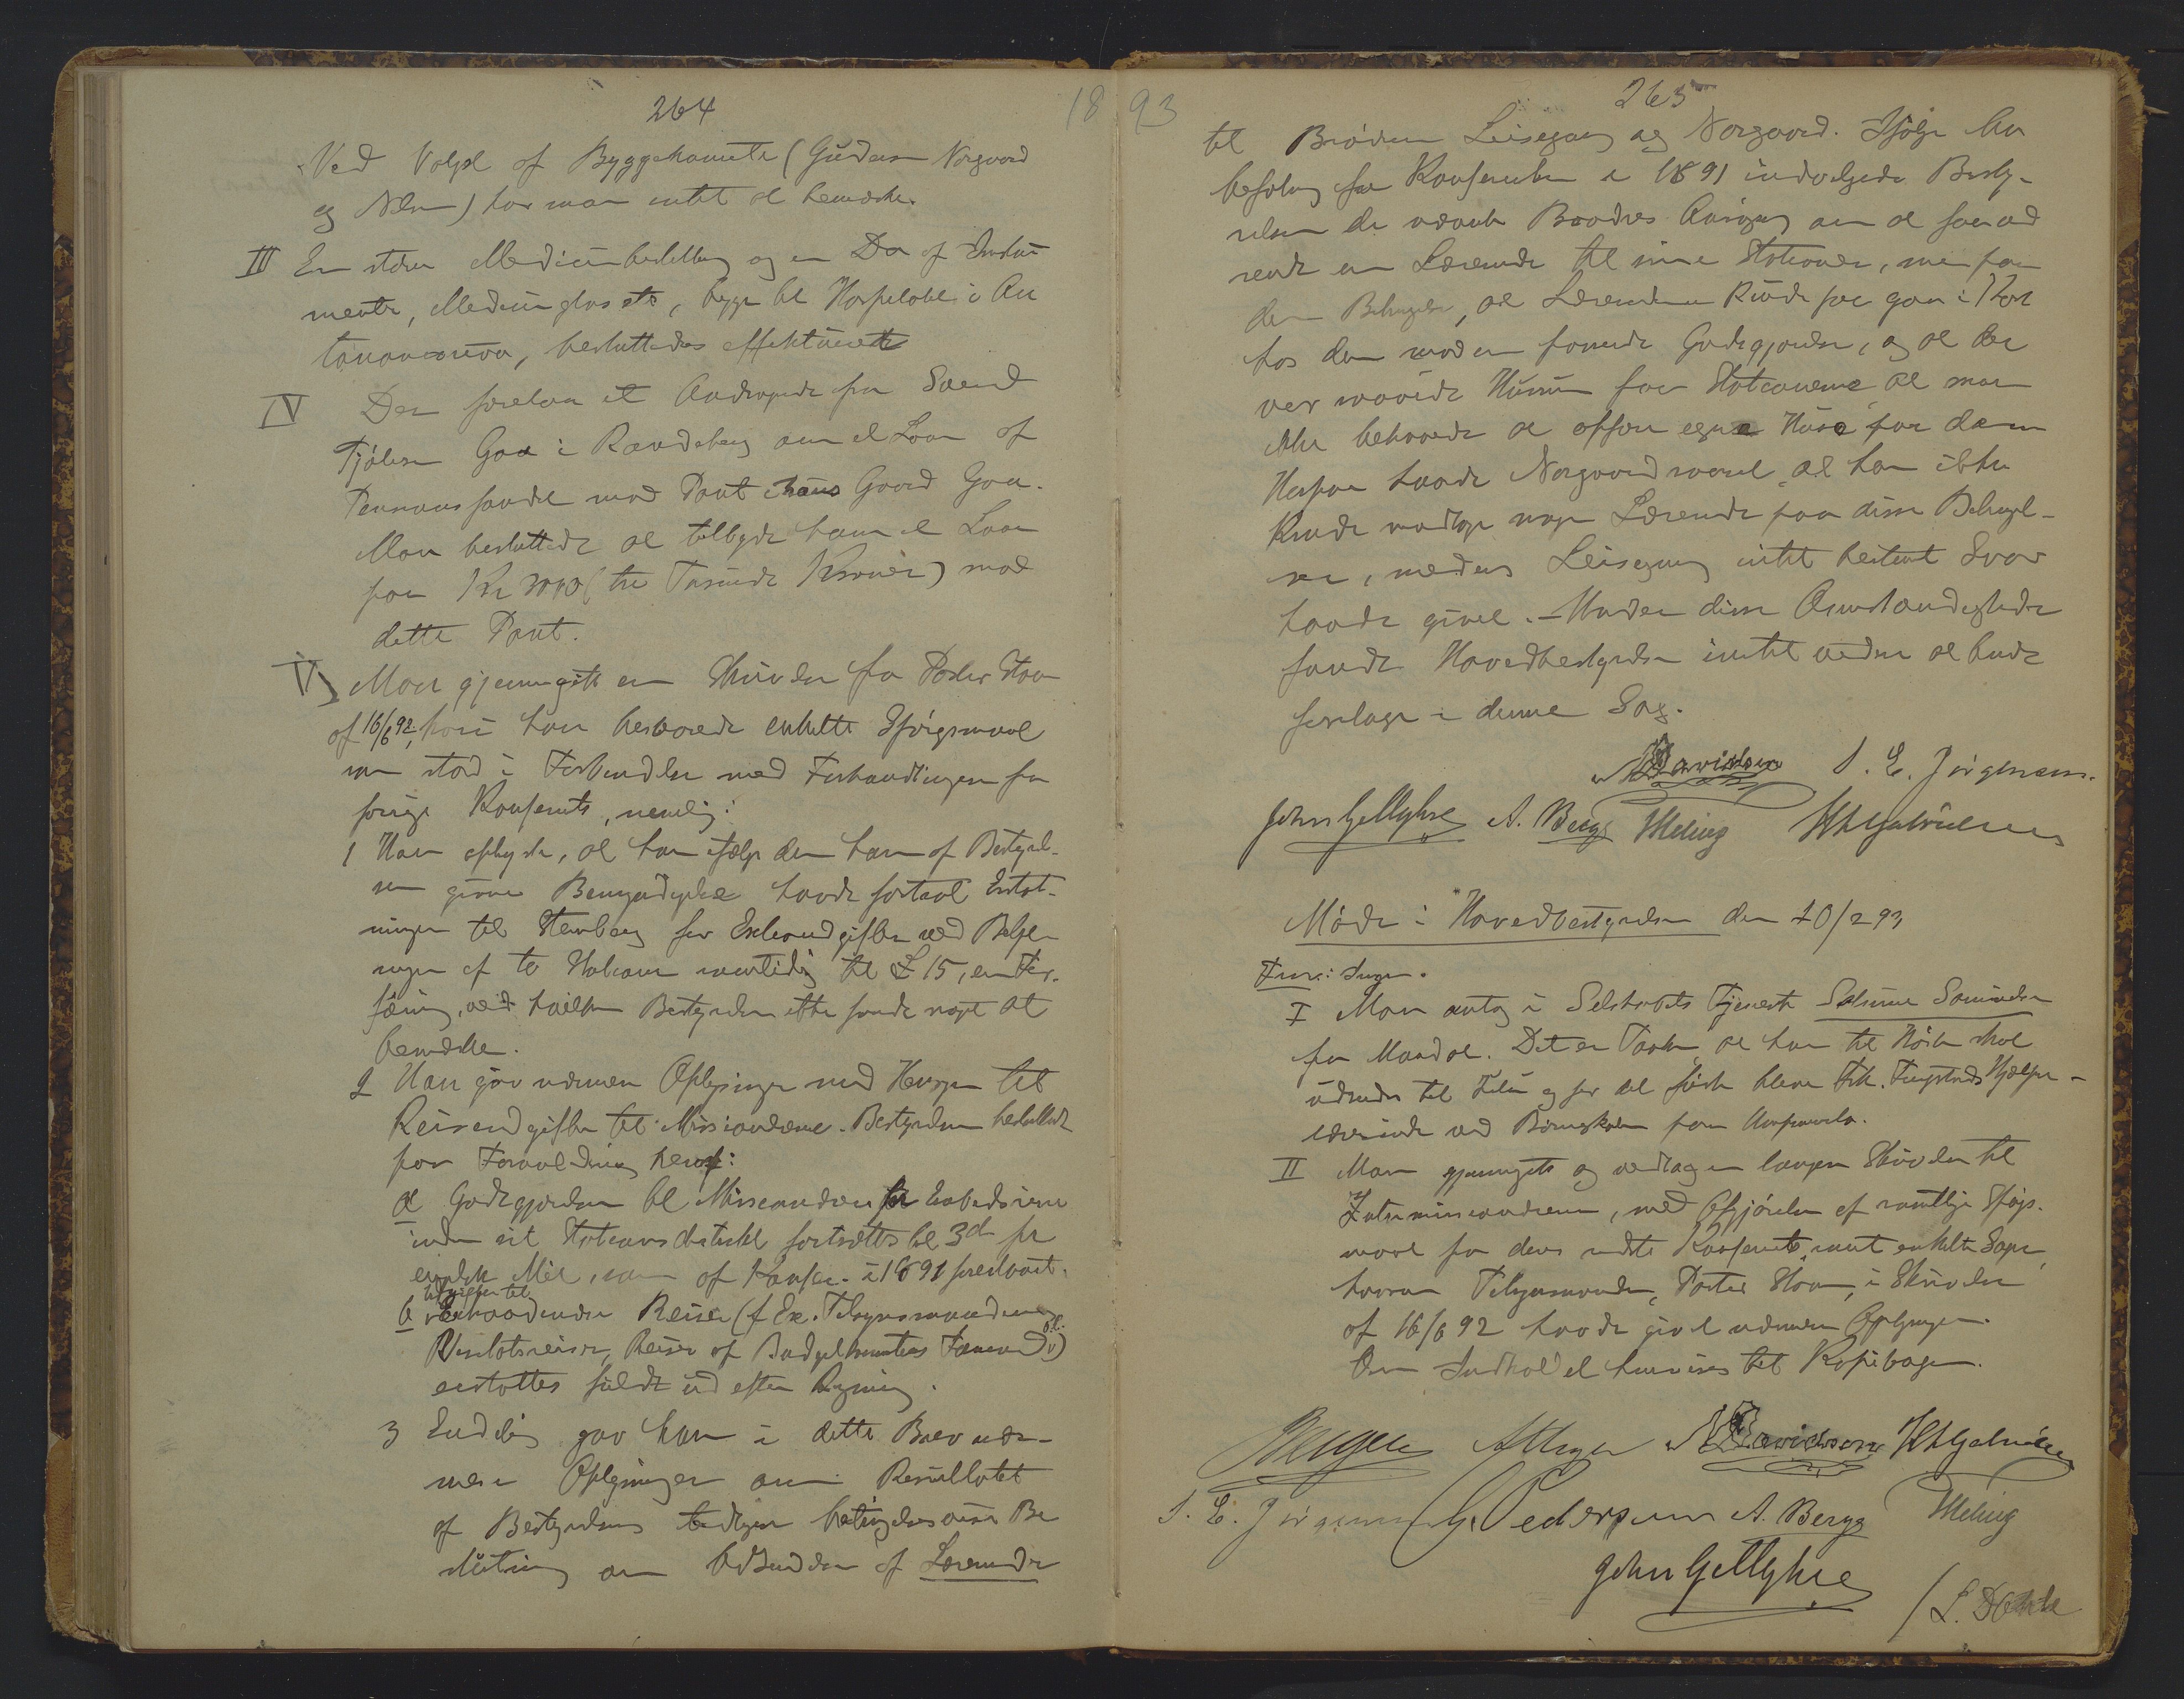 264
Ved Valget af Byggekomite (Gudersen Norgaard
og Nilsen) har man intet at bemærke.
III En større Medicinbestilling og en Do af Instru
menter, Medicinglas etc, begge til Hospitalet i An
tananarivo, besluttedes effektueret
IV Der forelaa et Andragende fra Svend
Tjölsen Goa i Randeberg om et Laan af
Pensionsfondet mod Pant i hans Gaard Goa.
Man besluttede at tilbyde ham et Laan
paa Kr 3000 (tre Tusinde Kroner) mod
dette Pant.
V) Man gjennemgik en Skrivelse fra Pastor Stav
af 16/6 92, hvori han besvarede enkelte Spörgsmaal
som stod i Forbindelse med Forhandlingerne fra
forrige Konferents, nemlig:
1 Han oplyste, at han ifølge den ham af Bestyrel-
sen givne Bemyndigelse havde fortsat Erstat-
ningen til Stenberg for Extraudgifter ved Betje-
ningen af to Stationer samtidig til £ 15, en For-
föining, ved hvilken Bestyrelsen ikke fandt noget at
bemærke.
2 Han gav nærmere Oplysninger med Hensyn til
Reiseudgifter til Missionærerne. Bestyrelsen besluttede
paa Foranledning heraf:
a Godtgjørelsen til Missionærer for Embedsreiser
inden sit Stationsdistrikt fortsættes til 3d per
engelsk Mil, som af Konfer. i 1891 foreslaaet.
b Udgifter til vedkommende Reiser (f Ex. Tilsynsmandens
Visitatsreiser, Reiser af Budgetkomiteens Formand o.l.)
erstattes fuldt ud efter Regning.
3 Endelig gav han i dette Brev nær-
mere Oplysninger om Resultatet
af Bestyrelsens tidligere betingelsesvise Be
slutning om Udsendelse af Lærerinde
1893
265
til Brödrene Leisegang og Norgaard. Ifölge An
befaling fra Konferentsen i 1891 indvilgede Besty-
relsen de nævnte Brödres Ansögning om at faa ud
sendt en Lærerinde til sine Stationer, men paa
den Betingelse, at Lærerinderne kunde faa gaa i Kost
hos dem mod en passende Godtgjørelse, og at der
var saavidt Husrum paa Stationerne at man
ikke behøvede at opføre egne Huse for dem
Herpaa havde Norgaard svaret at han ikke
kunde modtage nogen Lærerinde paa disse Betingel-
ser, medens Leisegang intet bestemt Svar
havde givet. – Under disse Omstændigheder
fandt Hovedbestyrelsen intet videre at burde
foretage i denne Sag.
N Davidsen S. E. Jörgensen.
John Gjettghre A. Berge Meling
Möde i Hovedbestyrelsen den 20/2 93
Frav: Ingen.
I Man antog i Selskabets Tjeneste
fra Mandal. Det er Tanken at hun til Høsten skal
udsendes til og der til först blive Frk. Hjælpe-
lærerinde ved Börneskolen paa
II Man gjennemgik og vedtog en længere Skrivelse til
Zulumissionærerne, med Afgjörelse af samtlige Spörgs-
maal fra deres sidste Konferents, samt enkelte Sager,
hvorom Tilsynsmanden, Pastor Stav, i Skrivelse
af 16/6 92 havde givet nærmere Oplysninger.
Om Indholdet henvises til Kopibogen.
N Davidsen
S. E. Jörgensen Pedersen A. Berge Meling
John Gjettghre
/ L. Dahle